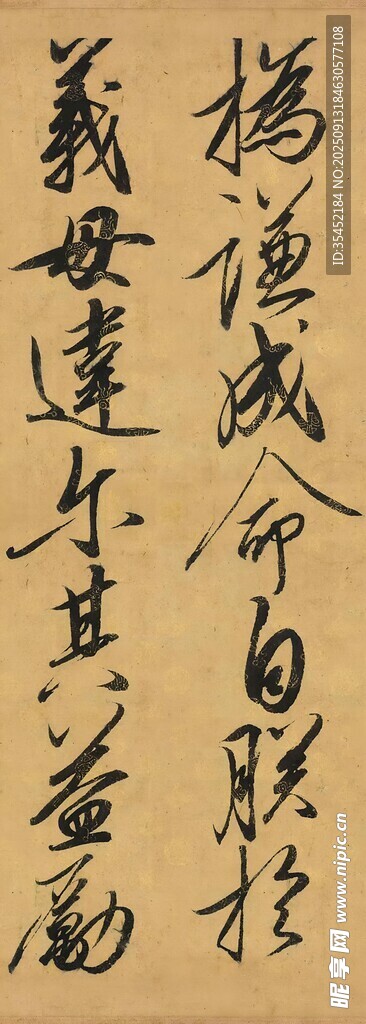 撝謙成命自朕於
義毋違尔其益勵
ID:35452184 NO:20250913184630577108
昵享网 www.nipic.cn